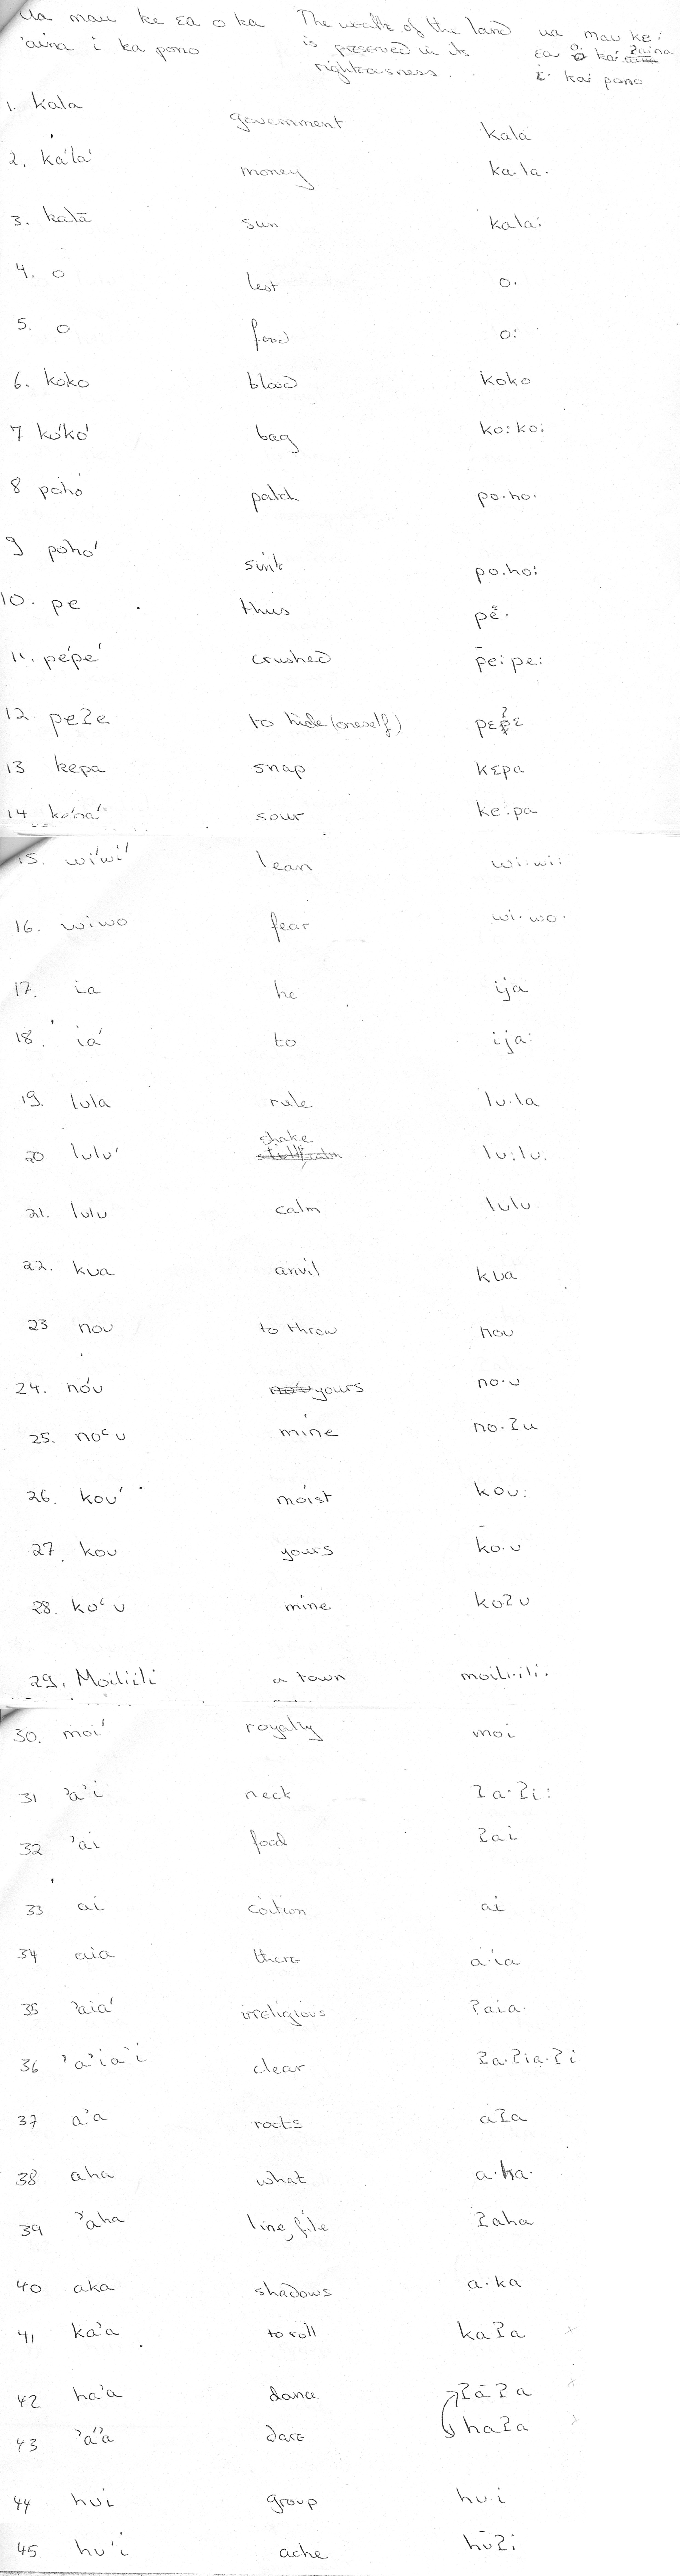 Ua mau ke ea o ka The wealth of the land ua mau ke:
'aina i ka pono is preserved in its ɛa o. ka. ʔaina
righteousness. i. ka. pono
1. kala government kala
2. ká lá money ka.la.
3. kalā sun kala:
4. o lest o.
5. o food o:
6. koko blood koko
7 kókó bag ko:ko:
8 poho patch po.ho.
9 pohó sink po.ho:
10. pe thus pe.
11. pépé crushed pe:pe:
12. peʔe to hide (oneself) pɛʔɛ
13 kepa snap kɛpa
14 sour ke:pa
15. wíwí lean wi:wi:
16. wiwo fear wi.wo.
17. ia he ija
18. iá to ija:
19. lula rule lu.la
20 lulú shake lu:lu:
21. lulu calm lulu
22. kua anvil kua
23 nou to throw nou
24. nóu yours no.u
25. noʿu mine no.ʔu
26. koú moist kou:
27. kou yours ko.u
28. koʿu mine koʔu
29. Moiliili a town moili.ili.
30. moí royalty moi
31 'a'i neck ʔa.ʔi:
32 'ai food ʔai
33 ai coition ai
34 aia there a.ia
35 'aiá irreligious ʔaia.
36 'a'ia'i clear ʔa.ʔia.ʔi
37 a'a rocts aʔa
38 aha what a.ha.
39 'aha line, file ʔaha
40 aka shadows a.ka
41 ka'a to roll kaʔa
42 ha'a dance ʔāʔa
43 'a'a dare haʔa
44 hui group hu.i
45 hu'i ache hūʔi